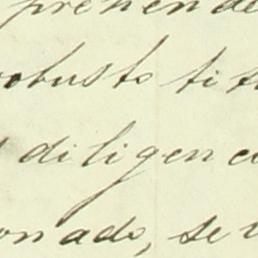 prehende
robusto tit
diligenc
onado, se